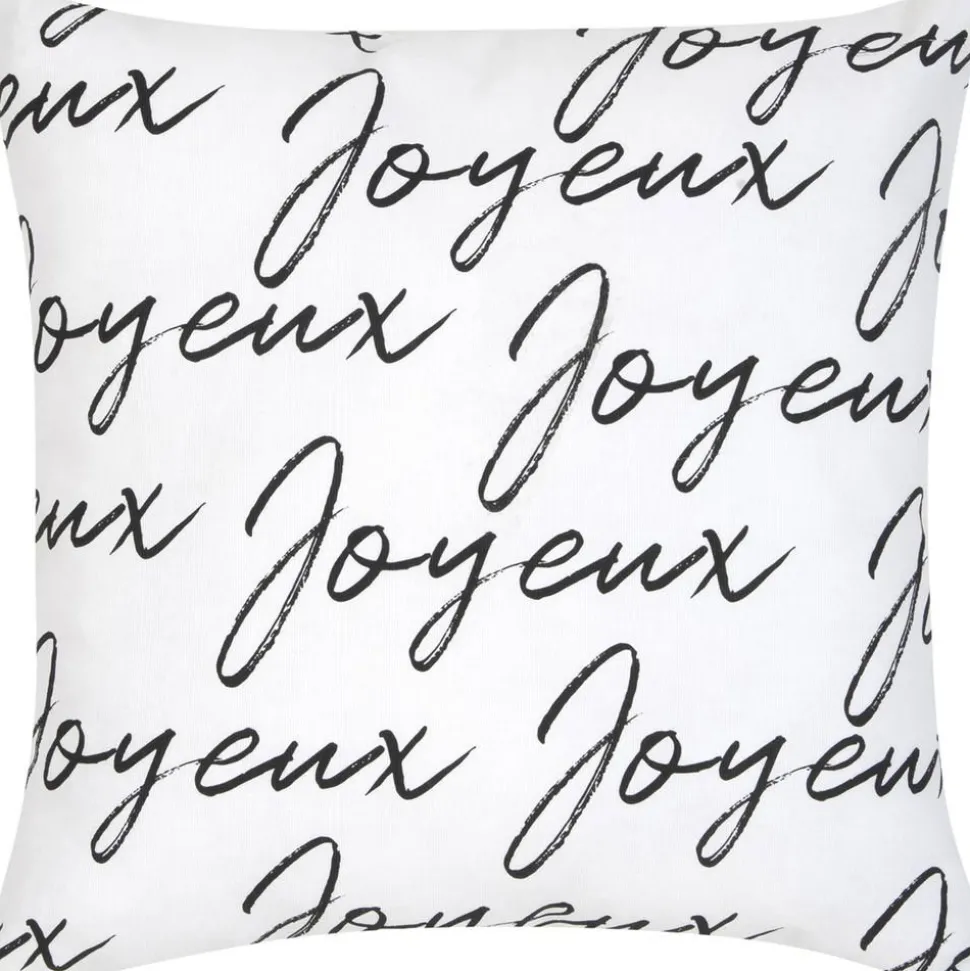 Joyeu
eux Joyeux J
Joyeux Joyeux
eux Joyeux J
Joyeux Joyeux
x Joyeux J